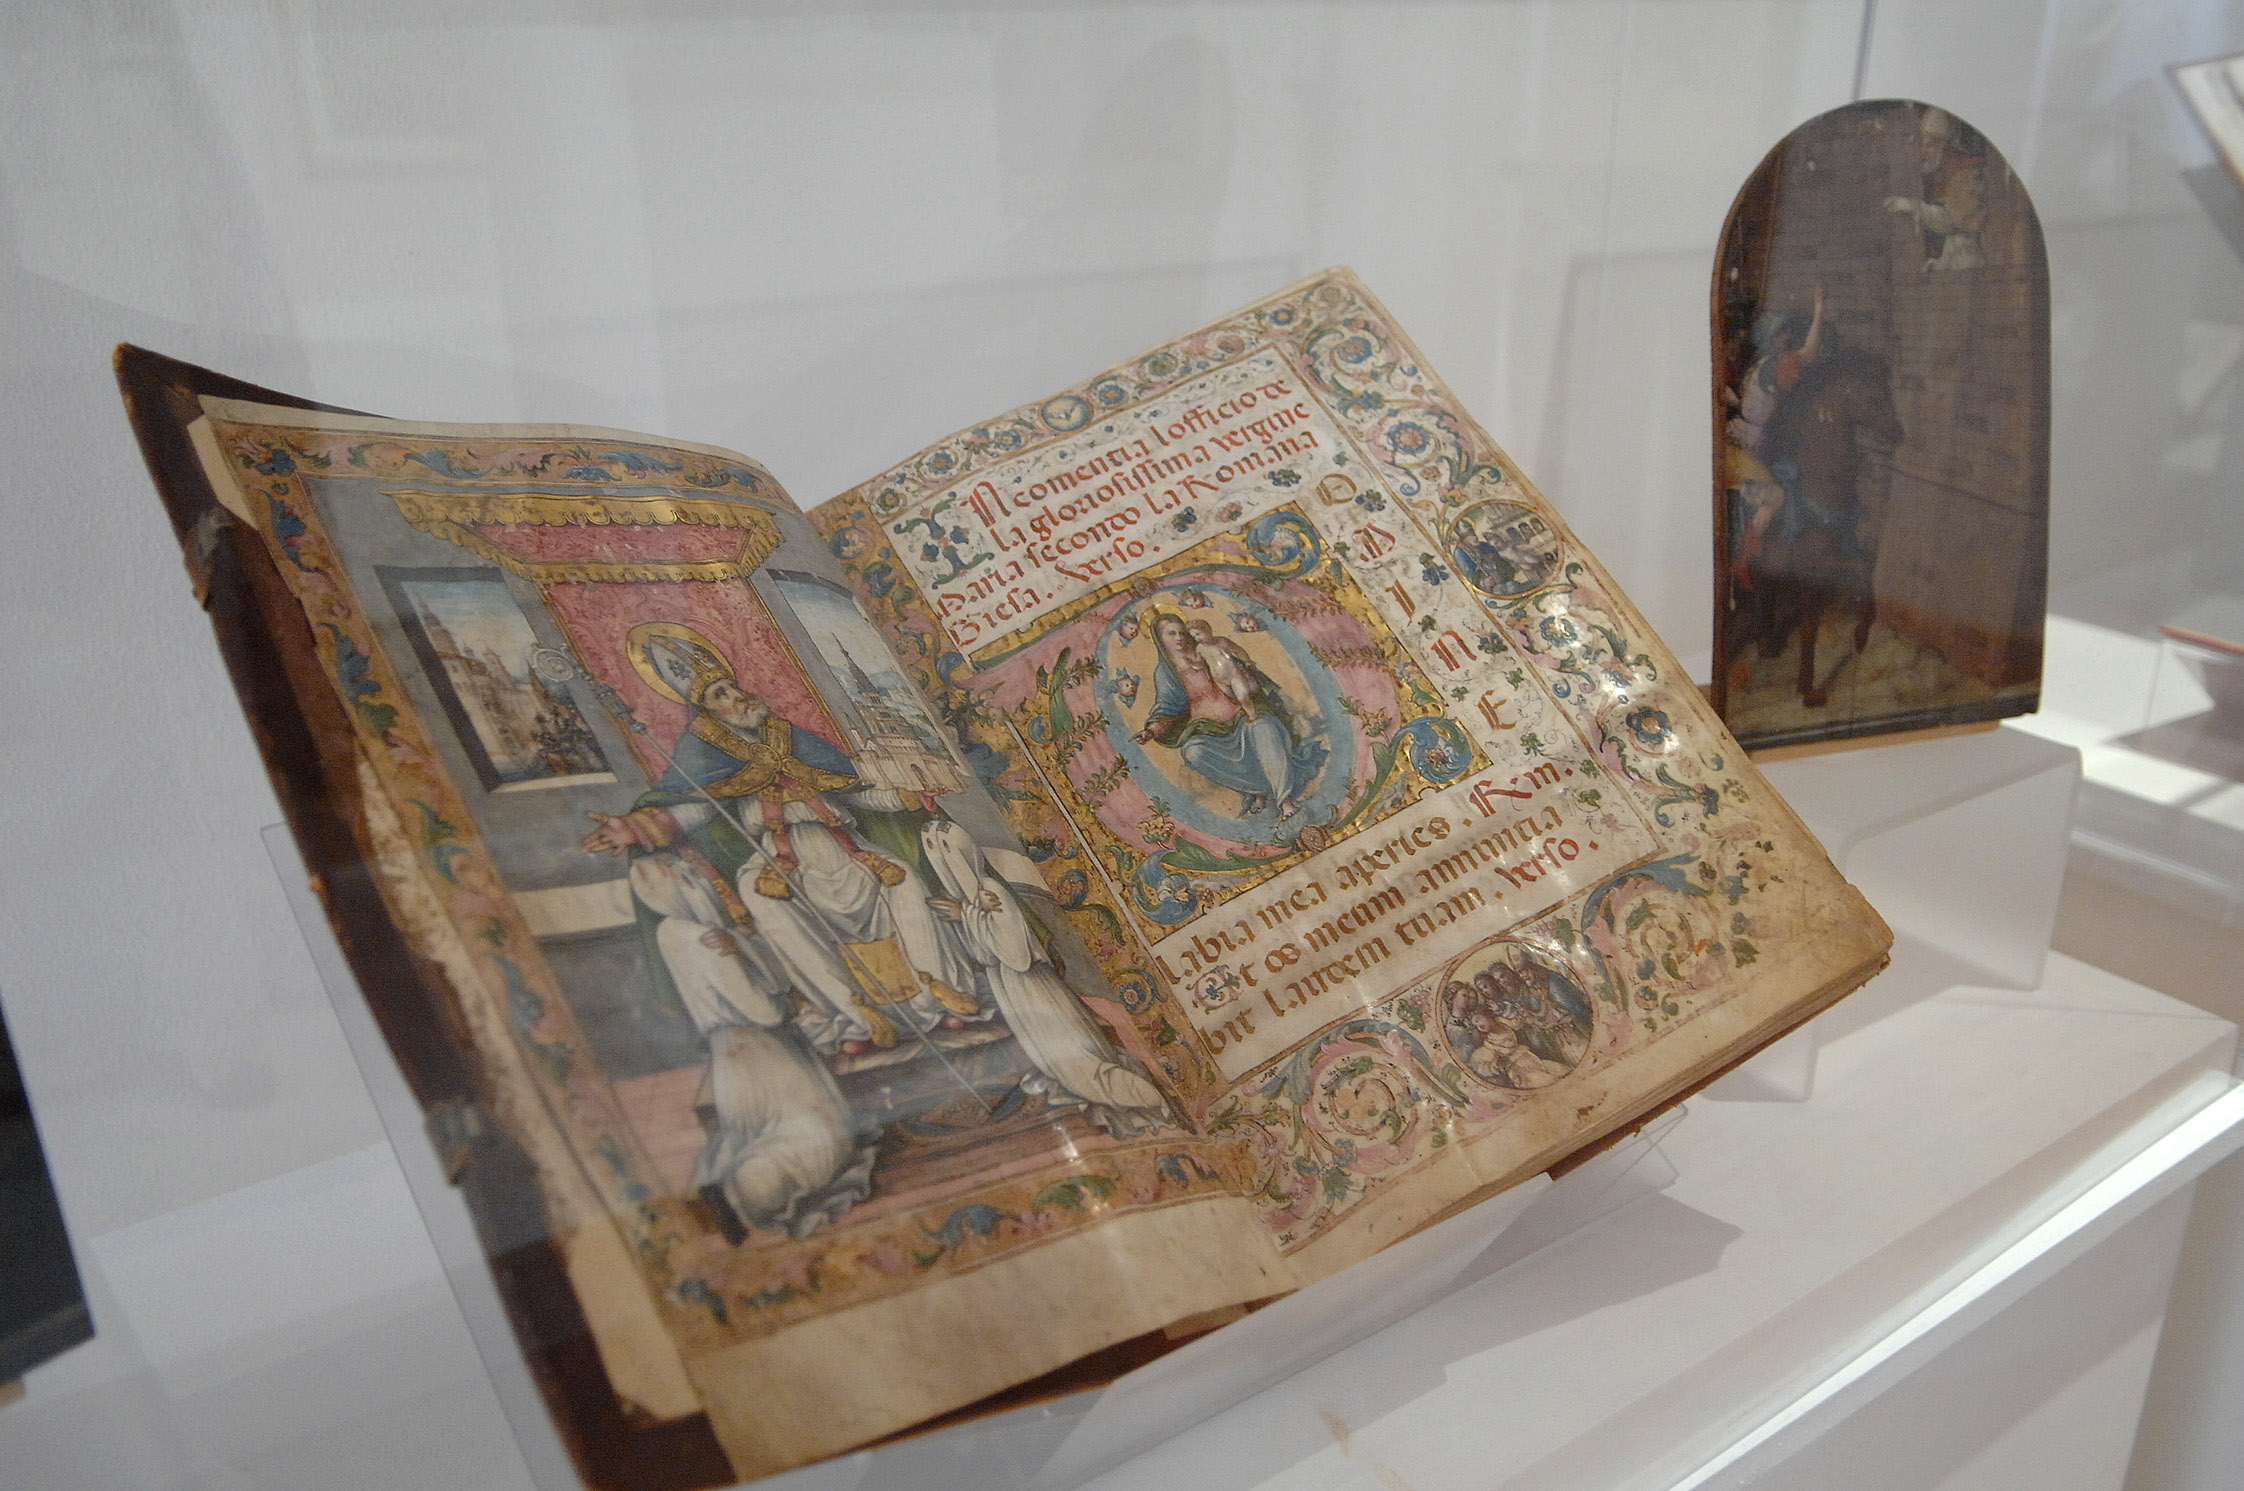 INcomentia lofficio de
la gloriosissima vergine
Maria secondo la Romana
Giesa. verso.
DOMINE
labia mea aperies. Rm.
Et os meum annuntia
bit laudem tuam. verso.